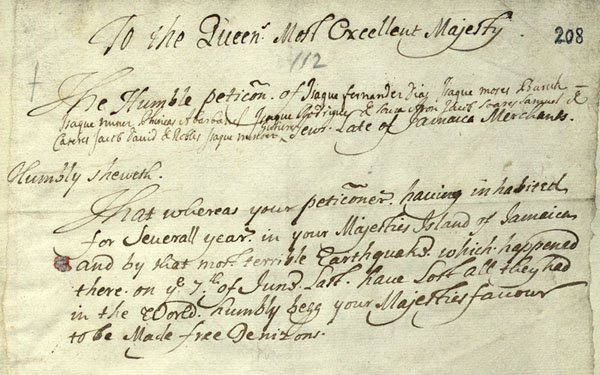 To the Queens Most Excellent Majesty
208
112
The Humble peticon. of Isaque fernander Diaz Isaque moses Baruh
Isaque nunez Isaque Rodrigues de sousa Aron Jacob Soarez Samuel de
Caceres Jacob David de Robles Isaque Jews. Late of Jamaica Merchants.
Humbly sheweth.
That whereas your peticoners. having inhabited
for Severall years. in your Majesties Island of Jamaica
and by that most terrible Earthquake. which happened
there. on ye. 7th. of June. Last. have Lost all they had
in the World. humbly begg your Majesties favour
to be Made free Denizons.